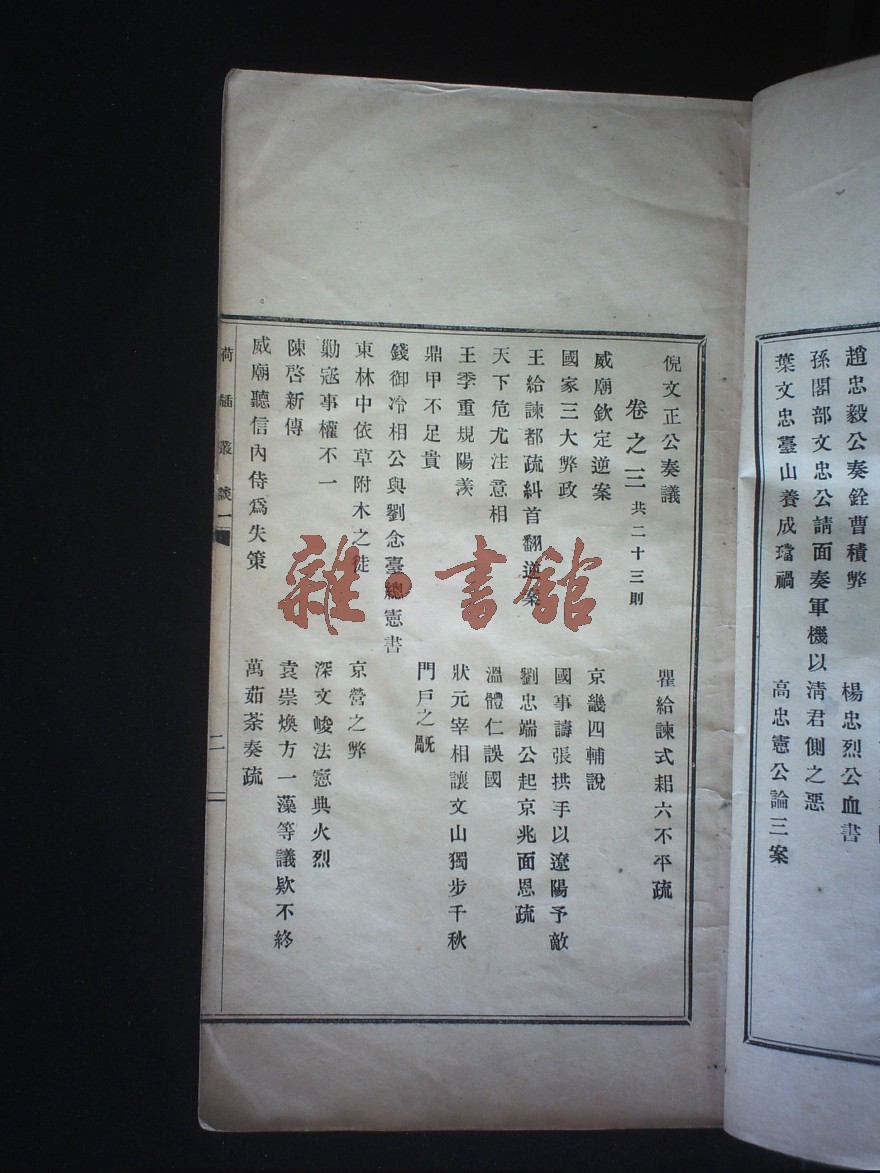 趙忠毅公奏銓曹積弊　楊忠烈公血書
孫閣部文忠公請面奏軍機以清君側之惡
葉文忠臺山養成璫禍　高忠憲公論三案
倪文正公奏議　瞿給諫式耜六不平疏
卷之三 共二十三則
威廟欽定逆案　京畿四輔說
國家三大弊政　國事譸張拱手以遼陽予敵
王給諫都疏糾首翻逆案　劉忠端公起京兆面恩疏
天下危尤注意相　溫體仁誤國
王季重規陽羨　狀元宰相讓文山獨步千秋
鼎甲不足貴　門戶之
錢御冷相公與劉念臺總憲書
東林中依草附木之徒　京營之弊
勦寇事權不一　深文峻法憲典火烈
陳啓新傳　袁崇煥方一藻等議欵不終
威廟聽信內侍爲失策　萬茹荼奏疏
荷牐叢談一　二
雜·書館